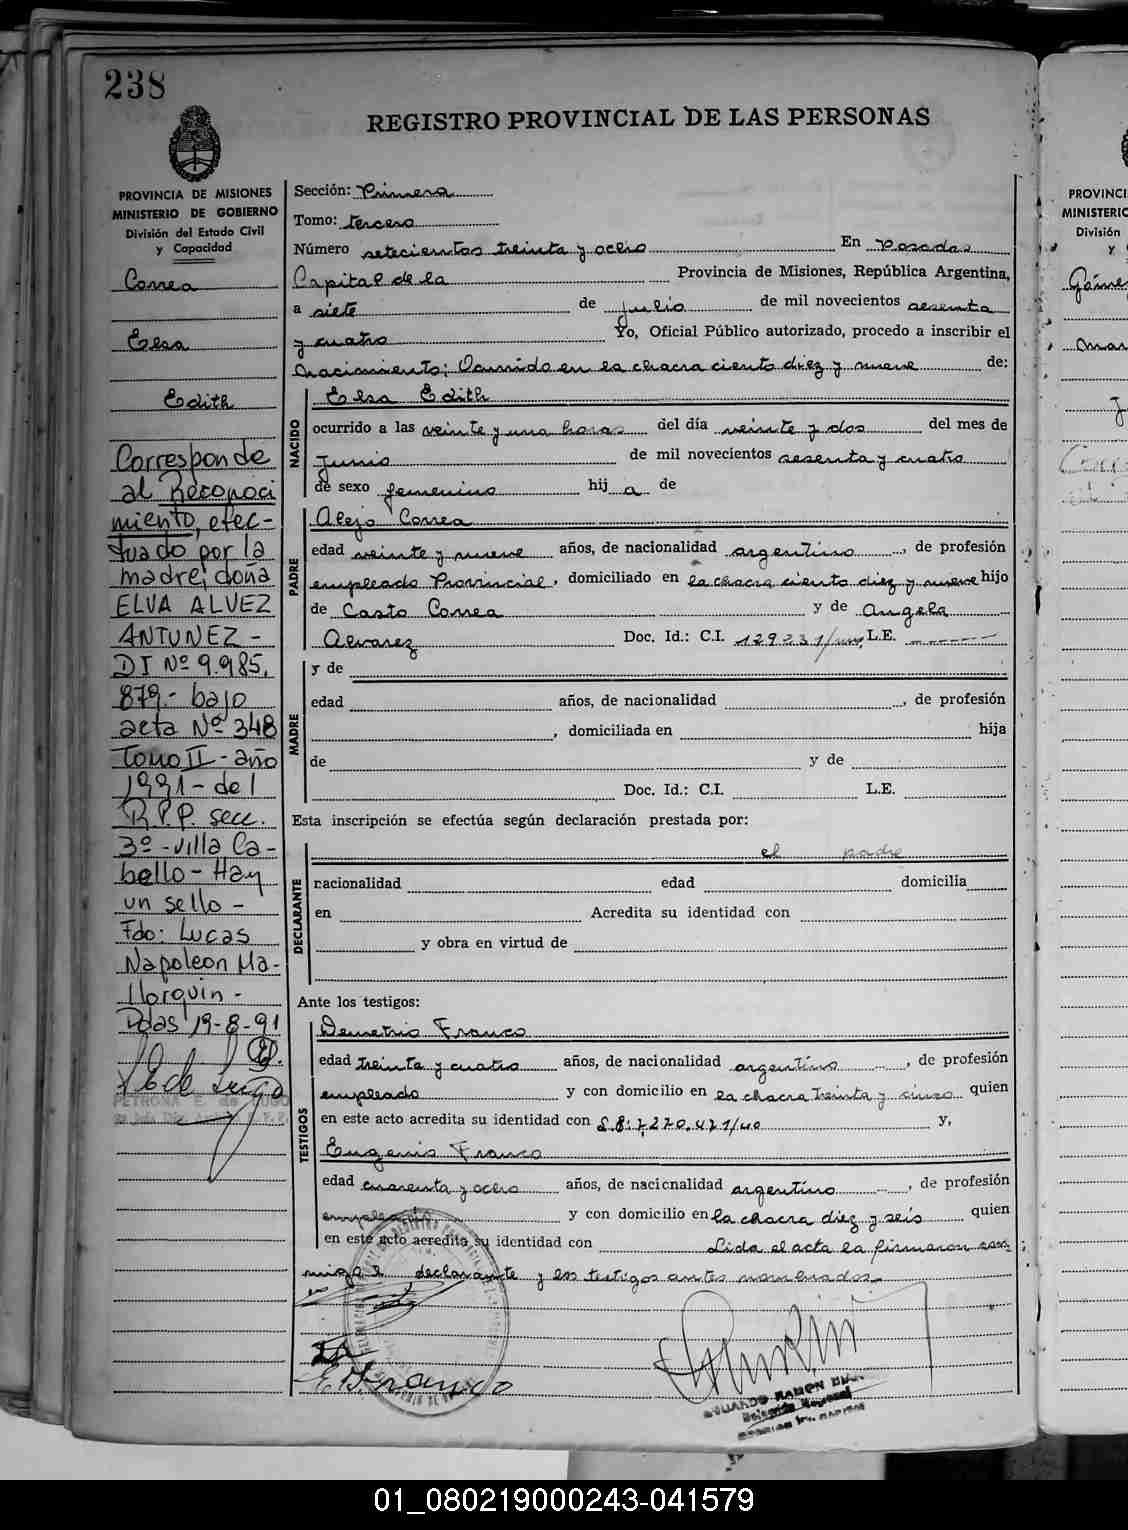 238
REGISTRO PROVINCIAL DE LAS PERSONAS
PROVINCIA DE MISIONES
MINISTERIO DE GOBIERNO
División del Estado Civil
y Capacidad
Correa
Elsa
Edith
Corresponde
al Reconoci
miento, efec-
tuado por la
madre, doña
ELVA ALVEZ
ANTUNEZ -
DI Nº 9.985.
879.- bajo
acta Nº 348
Tomo II - año
1991 - del
R.P.P. secc.
3º - Villa Ca-
bello - Hay
un sello -
Fdo: Lucas
Napoleon Ma-
llorquin -
Pdas 19-8-91
PETRONA E. de LUGO
Sección: Primera
Tomo: tercero
Número setecientos treinta y ocho En Posadas
Capital de la Provincia de Misiones, República Argentina,
a siete de Julio de mil novecientos sesenta
y cuatro Yo, Oficial Público autorizado, procedo a inscribir el
nacimiento; Ocurrido en la chacra ciento diez y nueve de:
NACIDO
Elsa Edith
ocurrido a las veinte y una horas del día veinte y dos del mes de
Junio de mil novecientos sesenta y cuatro
de sexo femenino hij a de
PADRE
Alejo Correa
edad veinte y nueve años, de nacionalidad argentino, de profesión
empleado Provincial, domiciliado en la chacra ciento diez y nueve hijo
de Casto Correa y de Angela
Alvarez Doc. Id.: C.I. L.E.
MADRE
y de
edad años, de nacionalidad, de profesión
, domiciliada en hija
de y de
Doc. Id.: C.I. L.E.
Esta inscripción se efectúa según declaración prestada por:
el padre
DECLARANTE
nacionalidad edad domicilia
en Acredita su identidad con
y obra en virtud de
Ante los testigos:
TESTIGOS
Demetrio Franco
edad treinta y cuatro años, de nacionalidad argentino, de profesión
empleado y con domicilio en la chacra treinta y cinco quien
en este acto acredita su identidad con 7.270.471/40 y,
Eugenio Franco
edad cuarenta y ocho años, de nacionalidad argentino, de profesión
empleado y con domicilio en la chacra diez y seis quien
en este acto acredita su identidad con Lida el acta la firmaron con-
migo el declarante y los testigos antes nombrados.
E Franco
EDUARDO RAMON
Delegado Regional
PROVINCI
MINISTERIO
División
y
01_080219000243-041579